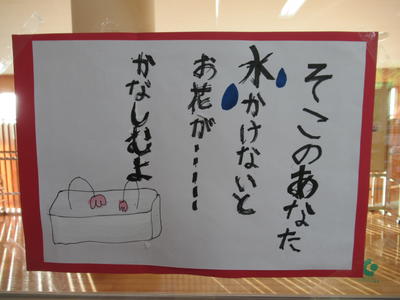 そこのあなた
水かけないと
お花が・・・・・
かなしむよ